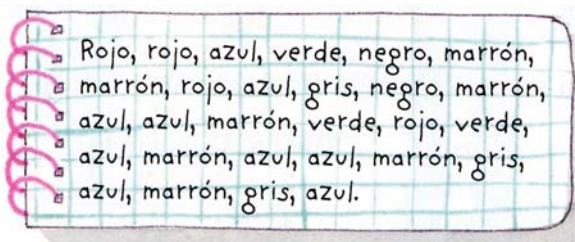 Rojo, rojo, azul, verde, negro, marrón,
marrón, rojo, azul, gris, negro, marrón,
azul, azul, marrón, verde, rojo, verde,
azul, marrón, azul, azul, marrón, gris,
azul, marrón, gris, azul.